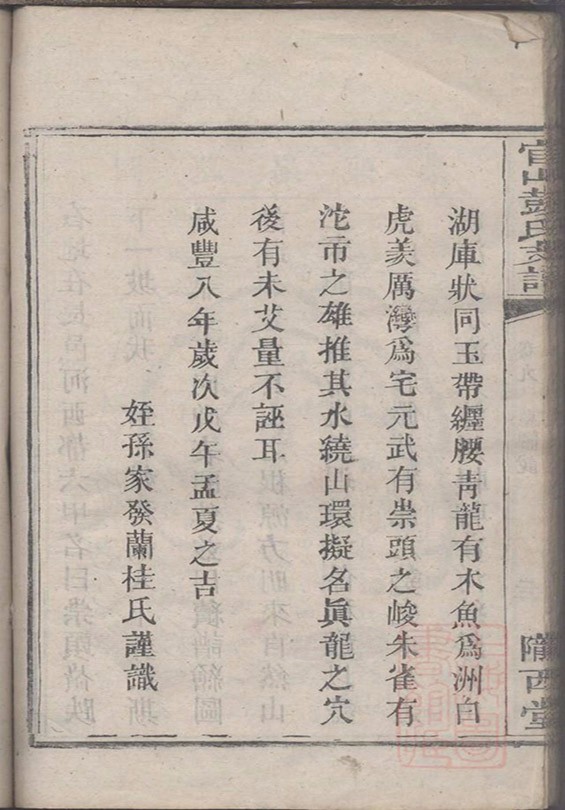 官山彭氏宗譜
隴西堂
湖庫狀同玉帶纒腰靑龍有木魚爲洲白
虎羨厲灣爲宅元武有崇頭之峻朱雀有
沱市之雄推其水繞山環擬名眞龍之穴
後有未艾量不誣耳
咸豐八年歲次戊午孟夏之吉
姪孫家發蘭桂氏謹識